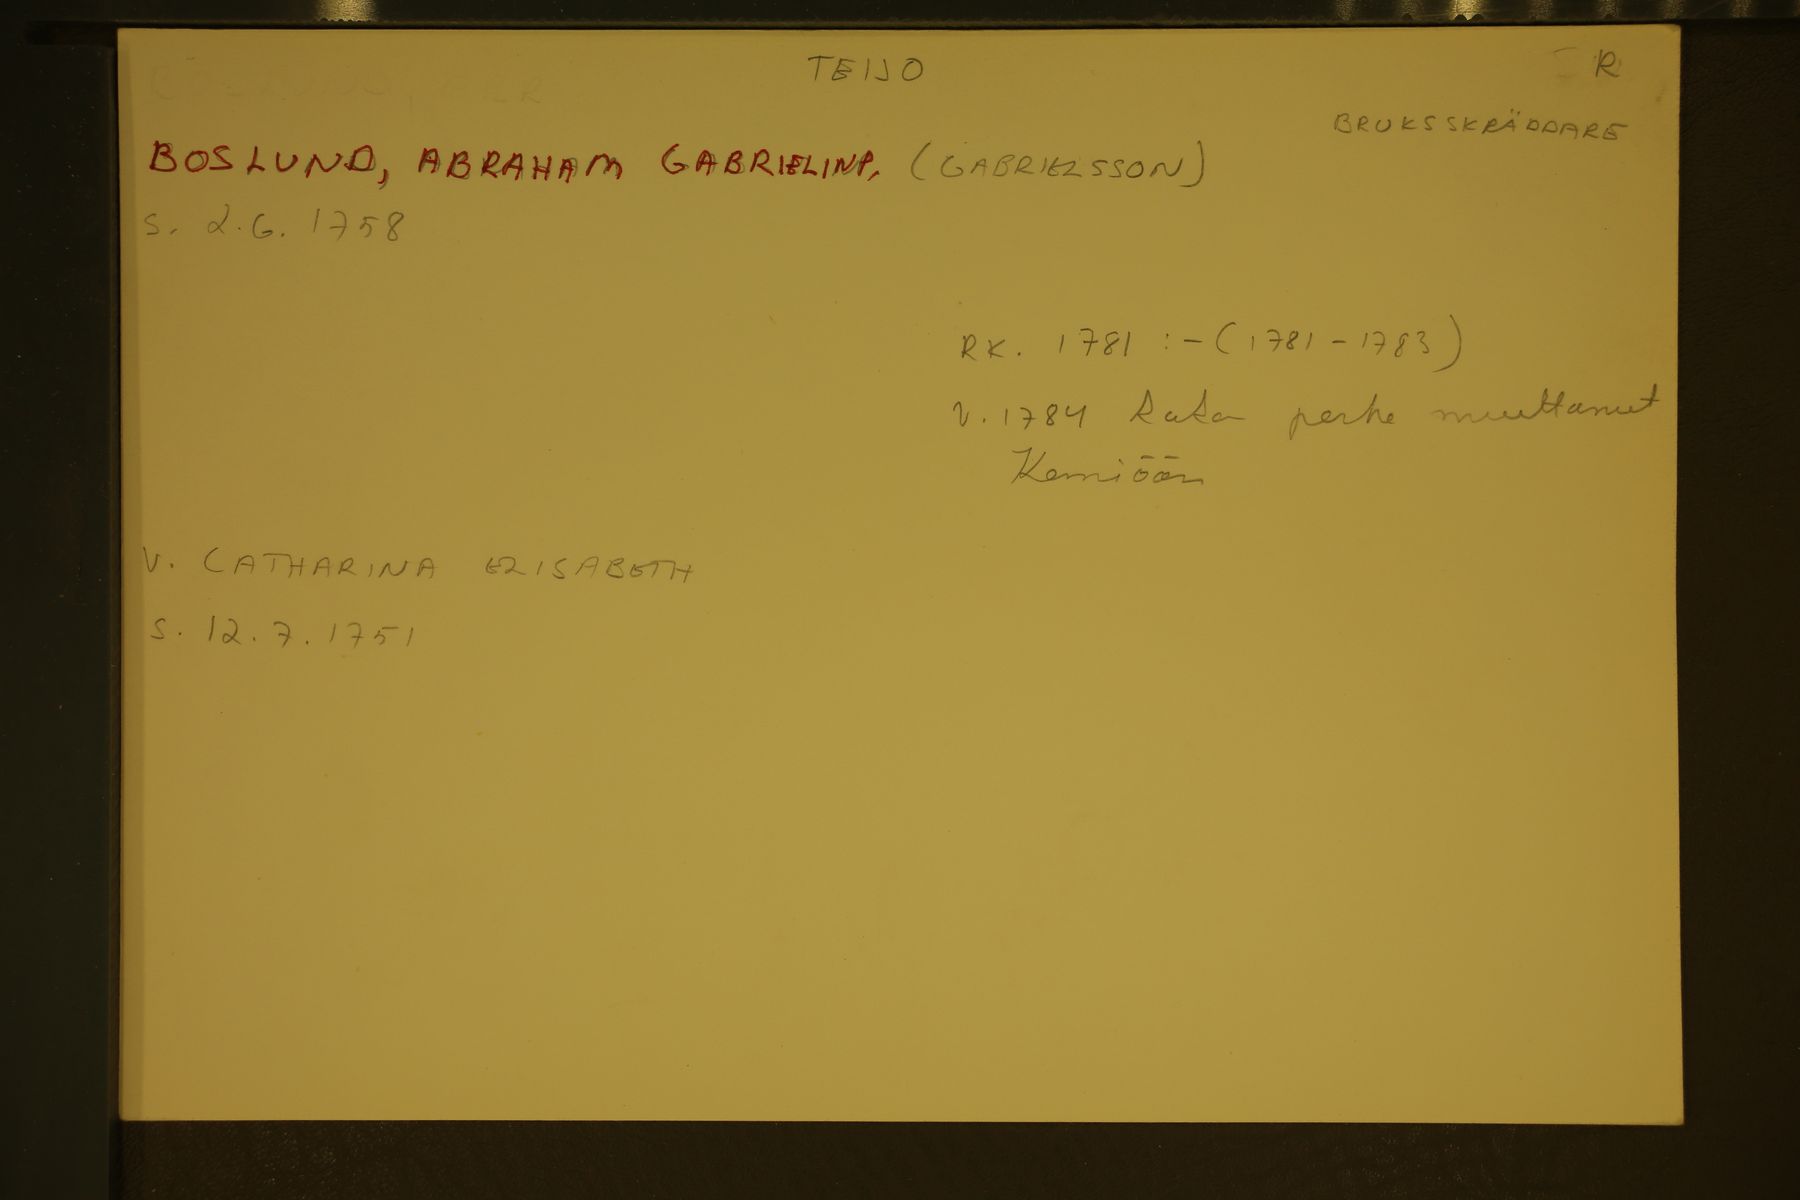 TEIJO
R
BRUKSSKRÄDDARE
BOSLUND, ABRAHAM GABRIELINP. (GABRIELSSON)
s. 2.6. 1758
RK. 1781 :-(1781-1783)
V. 1784 koko perhe muuttanut
Kemiöön
V. CATHARINA ELISABETH
s. 12.7.1751